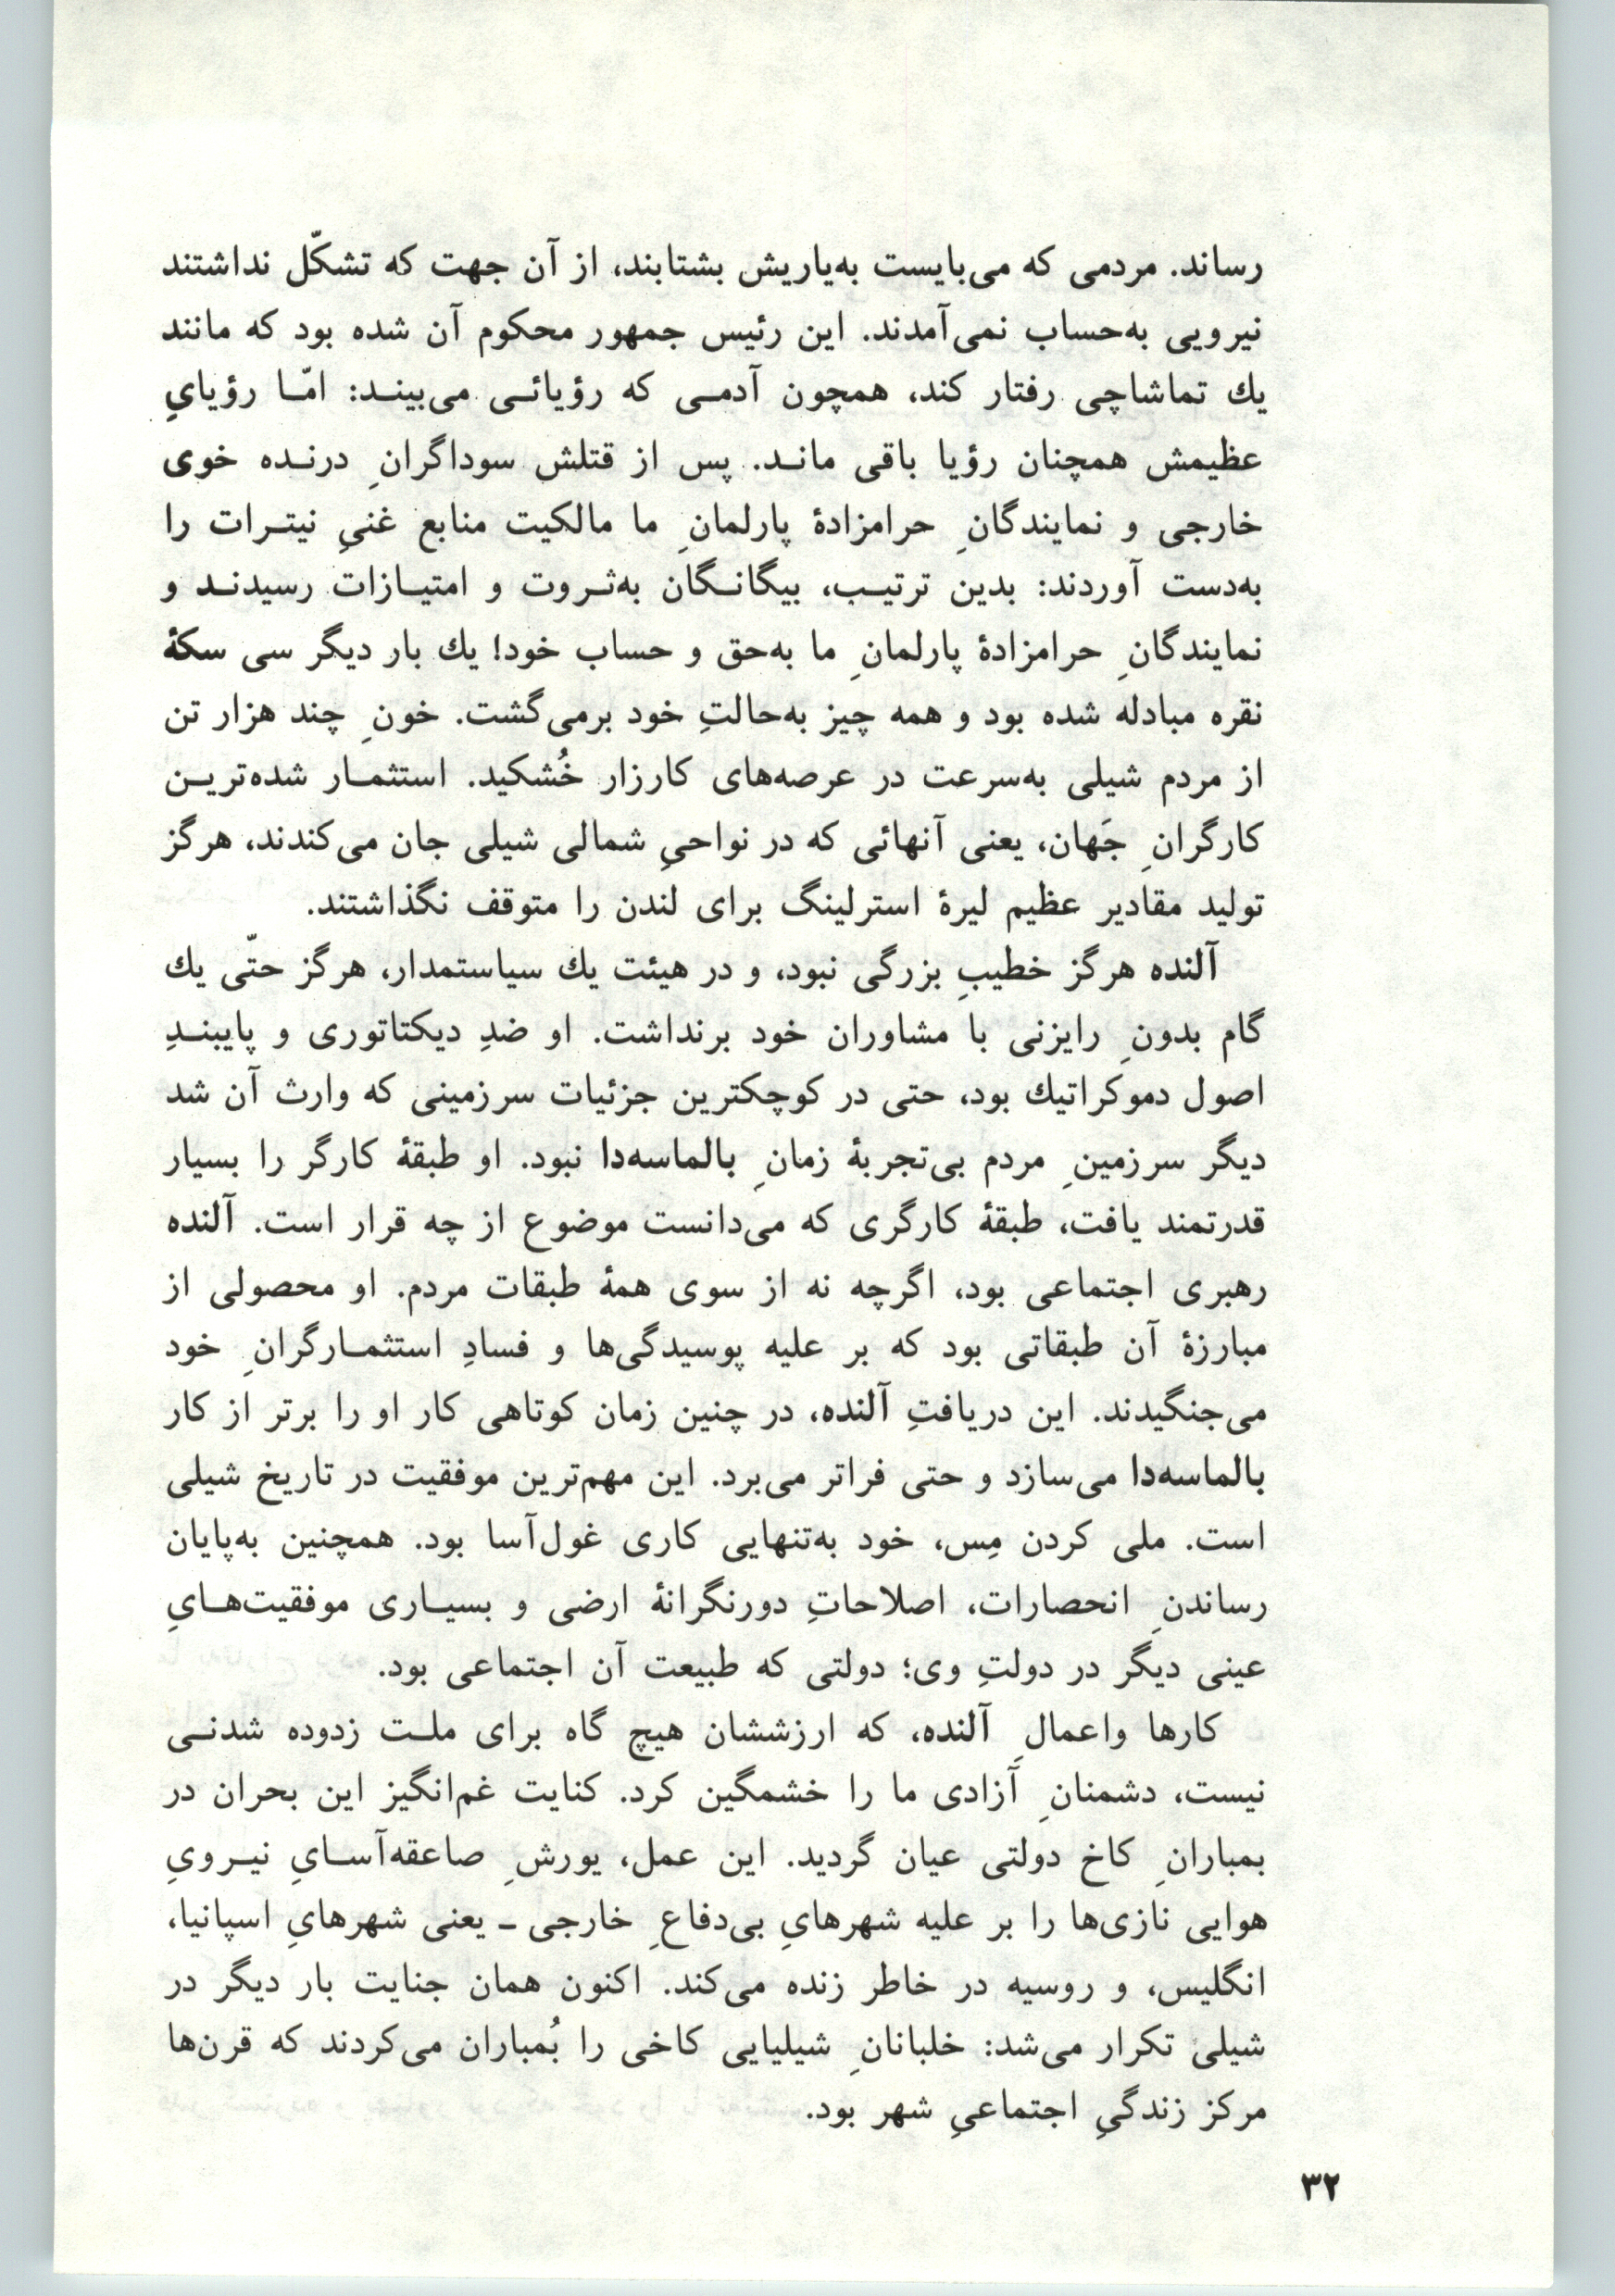 رساند. مردمی که می‌بایست به‌یاریش بشتابند، از آن جهت که تشکّل نداشتند
نیرویی به‌حساب نمی‌آمدند. این رئیس جمهور محکوم آن شده بود که مانند
یك تماشاچی رفتار کند، همچون آدمـی که رؤیائـی می‌بینـد: امّـا رؤیايِ
عظیمش همچنان رؤیا باقی مانـد. پس از قتلش سوداگرانِ درنـده خوی
خارجی و نمایندگانِ حرامزادهٔ پارلمانِ ما مالکیت منابع غنيِ نیتـرات را
به‌دست آوردند: بدین ترتیـب، بیگانـگان به‌ثـروت و امتیـازات رسیدنـد و
نمایندگانِ حرامزادهٔ پارلمانِ ما به‌حق و حساب خود! یك بار دیگر سی سکهٔ
نقره مبادله شده بود و همه چیز به‌حالتِ خود برمی‌گشت. خونِ چند هزار تن
از مردم شیلی به‌سرعت در عرصه‌های کارزار خُشکید. استثمـار شده‌تریـن
کارگرانِ جَهان، یعنی آنهائی که در نواحيِ شمالی شیلی جان می‌کندند، هرگز
تولید مقادیر عظیم لیرهٔ استرلینگ برای لندن را متوقف نگذاشتند.
آلنده هرگز خطیبِ بزرگی نبود، و در هیئت یك سیاستمدار، هرگز حتّی یك
گام بدونِ رایزنی با مشاوران خود برنداشت. او ضدِ دیکتاتوری و پایبنـدِ
اصول دموکراتیك بود، حتی در کوچکترین جزئیات سرزمینی که وارث آن شد
دیگر سرزمینِ مردم بی‌تجربهٔ زمانِ بالماسه‌دا نبود. او طبقهٔ کارگر را بسیار
قدرتمند یافت، طبقهٔ کارگری که می‌دانست موضوع از چه قرار است. آلنده
رهبری اجتماعی بود، اگرچه نه از سوی همهٔ طبقات مردم. او محصولی از
مبارزهٔ آن طبقاتی بود که بر علیه پوسیدگی‌ها و فسادِ استثمـارگرانِ خود
می‌جنگیدند. این دریافتِ آلنده، در چنین زمان کوتاهی کار او را برتر از کار
بالماسه‌دا می‌سازد و حتی فراتر می‌برد. این مهم‌ترین موفقیت در تاریخ شیلی
است. ملی کردن مِس، خود به‌تنهایی کاری غول‌آسا بود. همچنین به‌پایان
رساندنِ انحصارات، اصلاحاتِ دورنگرانهٔ ارضی و بسیـاری موفقیت‌هـايِ
عینی دیگر در دولتِ وی؛ دولتی که طبیعت آن اجتماعی بود.
کارها واعمالِ آلنده، که ارزششان هیچ گاه برای ملـت زدوده شدنـی
نیست، دشمنانِ آزادی ما را خشمگین کرد. کنایت غم‌انگیز این بحران در
بمبارانِ کاخ دولتی عیان گردید. این عمل، یورشِ صاعقه‌آسـايِ نیـرويِ
هوایی نازی‌ها را بر علیه شهرهايِ بی‌دفاعِ خارجی ـ یعنی شهرهايِ اسپانیا،
انگلیس، و روسیه در خاطر زنده می‌کند. اکنون همان جنایت بار دیگر در
شیلی تکرار می‌شد: خلبانانِ شیلیایی کاخی را بُمباران می‌کردند که قرن‌ها
مرکز زندگيِ اجتماعيِ شهر بود.
۳۲